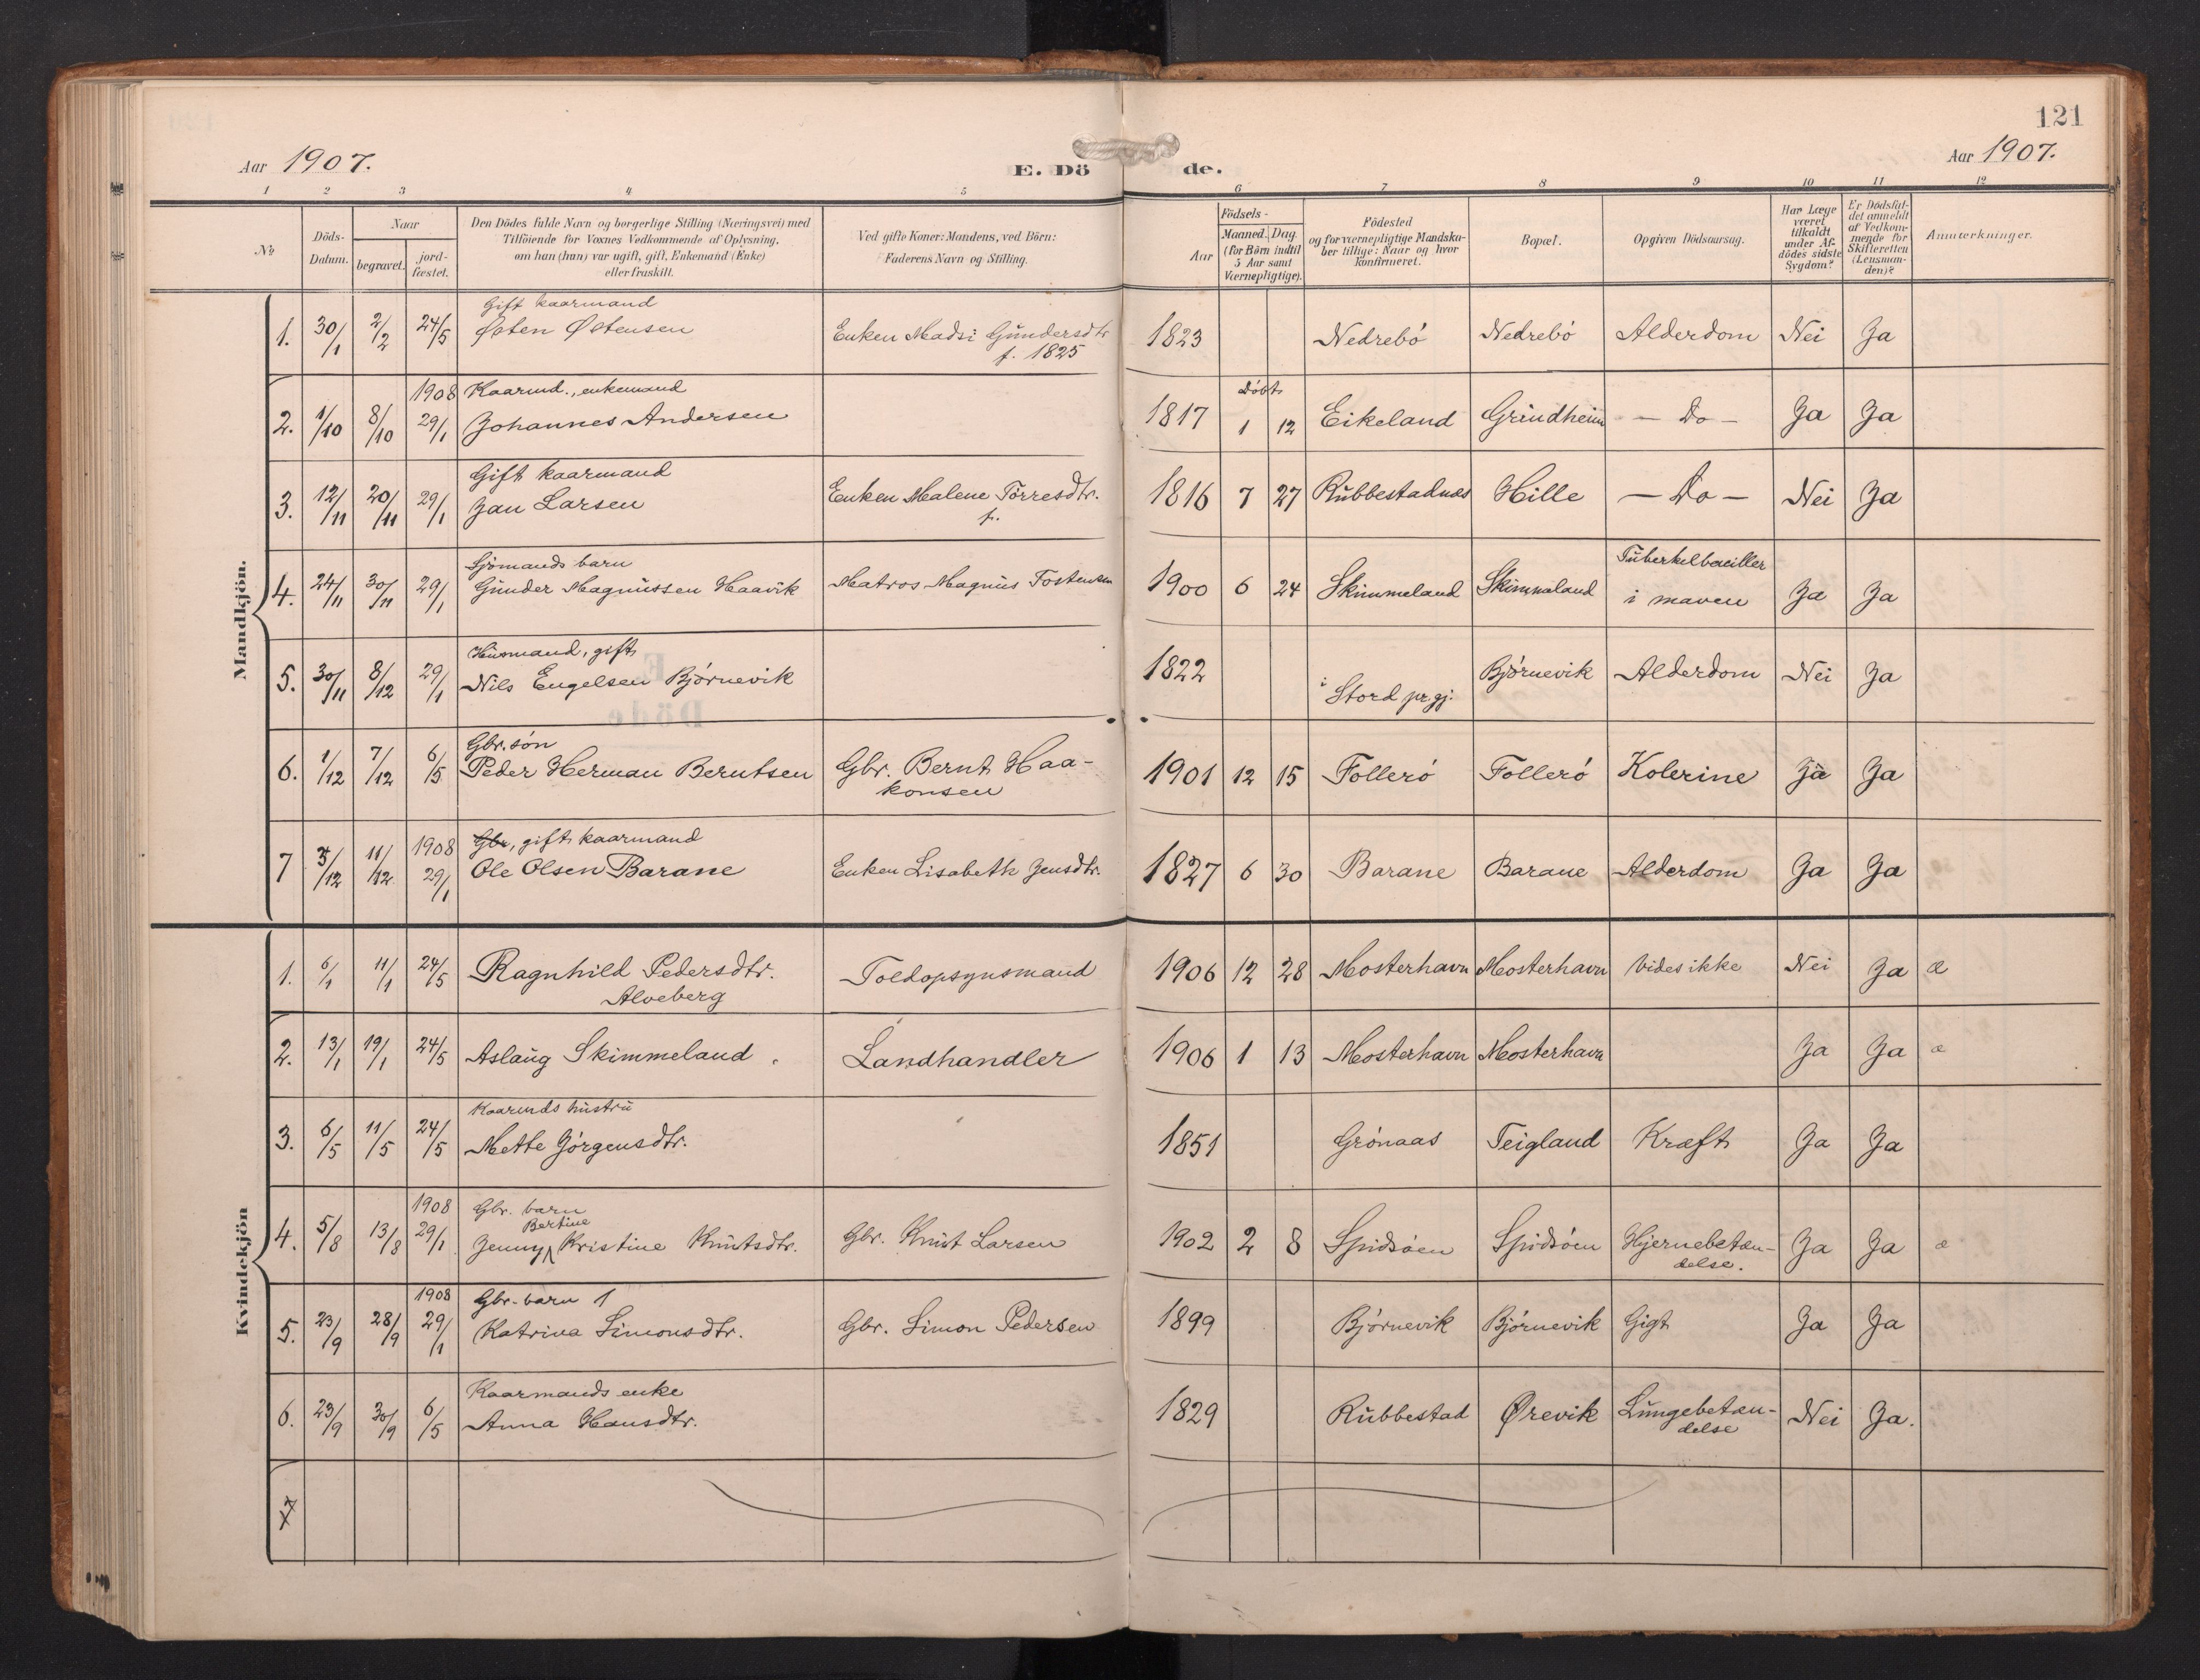 121
Aar 1907.
E. Dö de.
Aar 1907.
1 2 3 4 5 6 7 8 9 10 11 12
No
Döds-Datum.
Naar
begravet.
jord-fæstet.
Den Dödes fulde Navn og borgerlige Stilling (Næringsvei) med
Tilföiende for Voxnes Vedkommende af Oplysning,
om han (hun) var ugift, gift, Enkemand (Enke)
eller fraskilt.
Ved gifte Koner: Mandens, ved Börn:
Faderens Navn og Stilling.
Födsels-
Aar
Maaned. Dag.
(for Börn indtil
5 Aar samt
Værnepligtige).
Födested
og for værnepligtige Mandska-
ber tillige: Naar og hvor
konfirmeret.
Bopæl.
Opgiven Dödsaarsag.
Har Læge
været
tilkaldt
under Af-
dödes sidste
Sygdom?
Er Dödsfal-
det anmeldt
af Vedkom-
mende for
Skifteretten
(Lensman-
den)?
Anmærkninger.
Mandkjön.
Gift kaarmand
1. 30/1 2/2 24/5 Østen Østensen Enken Madsi Gundersdtr 1823 Nedrebö Nedrebö Alderdom Nei Ja
f. 1825
1908 Kaarmd., enkemand Döbt
2. 1/10 8/10 29/1 Johannes Andersen 1817 1 12 Eikeland Grindheim — Do — Ja Ja
Gift kaarmand
3. 12/11 20/11 29/1 Jan Larsen Enken Malene Törresdtr. 1816 7 27 Rubbestadnæs Hille — Do — Nei Ja
f.
Sjömands barn Tuberkelbaciller
4. 24/11 30/11 29/1 Gunder Magnussen Haavik Matros Magnus Tostensen 1900 6 24 Skimmeland Skimmeland i maven Ja Ja
Husmand, gift
5. 30/11 8/12 29/1 Nils Engelsen Björnevik 1822 i Stord pr.gj. Björnevik Alderdom Nei Ja
Gbr. sön
6. 1/12 7/12 6/5 Peder Herman Berntsen Gbr. Bernt Haa- 1901 12 15 Follerö Follerö Kolerine Ja Ja
konsen
1908 Gbr, gift kaarmand
7 /12 11/12 29/1 Ole Olsen Barane Enken Lisabeth Jensdtr. 1827 6 30 Barane Barane Alderdom Ja Ja
Kvindekjön
1. 6/1 11/1 24/5 Ragnhild Pedersdtr. Toldopsynsmand 1906 12 28 Mosterhavn Mosterhavn Vides ikke Nei Ja æ
Alveberg
2. 13/1 19/1 24/5 Aslaug Skimmeland. Landhandler 1906 1 13 Mosterhavn Mosterhavn Ja Ja æ
Kaarmds hustru
3. 6/5 11/5 24/5 Mette Jörgensdtr. 1851 Grönaas Teigland Kræft Ja Ja
1908 Gbr. barn
Bertine
4. 5/8 13/8 29/1 Jenny Kristine Knutsdtr. Gbr. Knut Larsen 1902 2 8 Spidsöen Spidsöen Hjernebetæn- Ja Ja æ
delse.
1908 Gbr. barn 1
5. 23/9 28/9 29/1 Katrina Simonsdtr. Gbr. Simon Pedersen 1899 Björnevik Björnevik Gigt Ja Ja
Kaarmands enke
6. 23/9 30/9 6/5 Anna Hansdtr. 1829 Rubbestad Ørevik Lungebetæn- Nei Ja.
delse
7